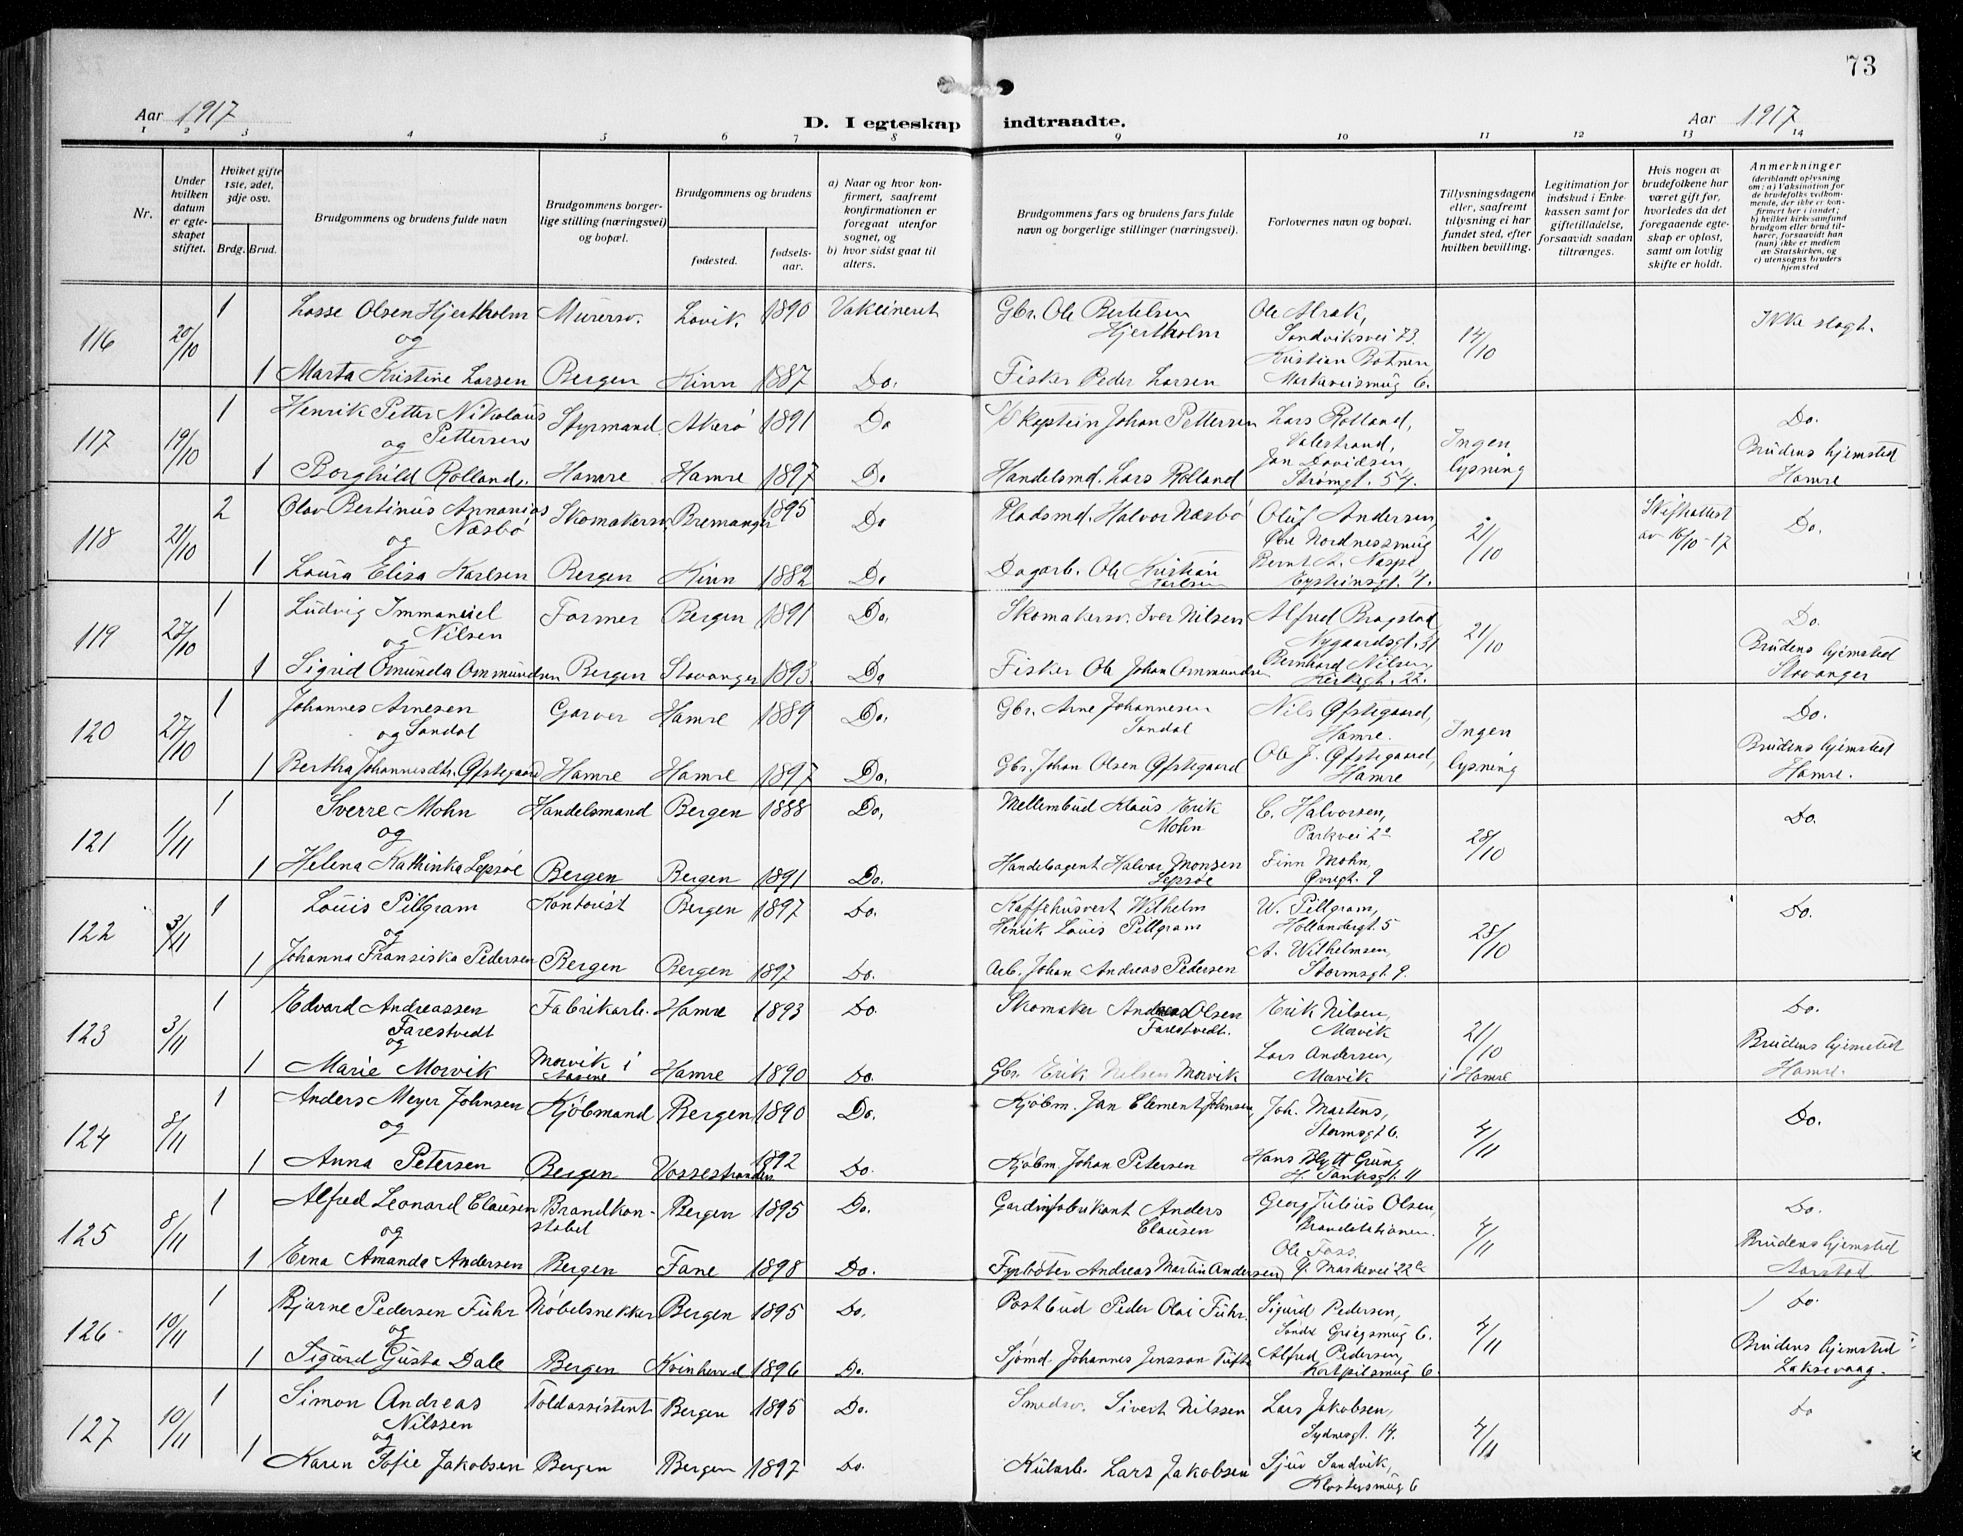 73
Aar 1917 D. I egteskap indtraadte. Aar 1917
1 2 3 4 5 6 7 8 9 10 11 12 13 14
Nr.
Under hvilken datum er egteskapet stiftet.
Hviket gifte 1ste, 2det, 3dje osv.
Brdg. Brud.
Brudgommens og brudens fulde navn
Brudgommens borgerlige stilling (næringsvei) og bopæl.
Brudgommens og brudens
fødested.
fødselsaar.
a) Naar og hvor konfirmert, saafremt konfirmationen er foregaat utenfor sognet, og
b) hvor sidst gaat til alters.
Brudgommens fars og brudens fars fulde navn og borgerlige stillinger (næringsvei).
Forlovernes navn og bopæl.
Tillysningsdagene eller, saafremt tillysning ei har fundet sted, efter hvilken bevilling.
Legitimation for indskud i Enkekassen samt for giftetilladelse, forsaavidt saadan tiltrænges.
Hvis nogen av brudefolkene har været gift før, hvorledes da det foregaaende egteskap er opløst, samt om lovlig skifte er holdt.
Anmerkninger
(deriblandt oplysning om: a) Vaksination for de brudefolks vedkommende, der ikke er konfirmert her i landet; b) hvilket kirkesamfund brudgom eller brud tilhører, forsaavidt han (hun) ikke er medlem av Statskirken, og c) utensogns bruders hjemsted
116 20/10 1 Lasse Olsen Hjertholm Murersv. Lavik. 1890 Vakcineret Gbr. Ole Bertelsen Hjertholm Ole Strak, Sandviksvei 73. 14/10 Ikke slegt.
og
1 Marta Kristine Larsen Bergen Kinn 1887 Do. Fisker Peder Larsen Kristian Botnen Markeveismug 6.
117 19/10 1 Henrik Petter Nikolaus Pettersen Styrmand Akerö 1891 Do Johan Pettersen Lars Rolland, Valestrand, Ingen lysning Do.
og
1 Borghild Rolland. Hamre Hamre 1897 Do Handelsmd. Lars Rolland Jan Davidsen, Strømgt. 54. Brudens hjemsted Hamre
118 21/10 2 Olav Bertinus Annanias Nasbö Skomakersv. Bremanger 1895 Do Pladsmd. Halvor Nasbö Oluf Andersen, Øvre Nordnessmug 21/10 av 16/10-17 Do.
og
1 Laura Elisa Karlsen Bergen Kinn 1882 Do Dagarb. Ole Kristian Karlsen Eysteinsgt. 4.
119 27/10 1 Ludvig Immanuel Nilsen Former Bergen 1891 Do. Skomakersv. Iver Nilsen Alfred Bragstad, Nygaardsgt. 31 21/10 Do.
og
1 Sigrid Omunda Ommundsen Bergen Stavanger 1893 Do Fisker Ole Johan Ommundsen Bernhard Nilsen, Kirkegt. 22. Brudens hjemsted Stavanger
120 27/10 1 Johannes Arnesen Sandal Garver Hamre 1889 Do. Gbr. Arne Johannesen Sandal Nils Øfstegaard, Hamre. Ingen lysning Do.
og
1 Bertha Johannesdtr. Øfstegaard Hamre Hamre 1897 Do. Gbr. Johan Olsen Øfstegaard Ole J. Øfstegaard, Hamre Brudens hjemsted Hamre.
121 1/11 1 Sverre Mohn Handelsmand Bergen 1888 Do. Mellembud Klaus Erik Mohn C. Halvorsen, Parkvei 2a 28/10 Do.
og
1 Helena Kathinka Lepsøe Bergen Bergen 1891 Do. Handelsagent Halvor Monsen Lepsøe Finn Mohn, Øvregt. 9
122 3/11 1 Louis Pillgram Kontorist Bergen 1897 Do. Kaffehusvert Wilhelm Henrik Louis Pillgram W. Pillgram, Hollændergt. 5 28/10 Do.
og
1 Johanna Fransiska Pedersen Bergen Bergen 1897 Do. Arb. Johan Andreas Pedersen A. Wilhelmsen, Stormsgt. 9.
123 3/11 1 Edvard Andreassen Farestvedt Fabrikarb. Hamre 1893 Do. Skomaker Andreas Olsen Farestvedt. Erik Nilsen, Morvik 21/10 i Hamre Do.
og
1 Marie Morvik Morvik i Aasene Hamre 1890 Do. Gbr. Erik Nilsen Morvik Lars Andersen, Morvik Brudens hjemsted Hamre.
124 8/11 1 Anders Meyer Johnsen Kjöbmand Bergen 1890 Do. Kjöbm. Jan Clement Johnsen Joh. Martens, Stormsgt 6. 4/11 Do.
og
1 Anna Petersen Bergen Vossestranden 1892 Do. Kjöbm. Johan Petersen Hans Blytt Grung H. Tanksgt. 11
125 8/11 1 Alfred Leonard Clausen Brandkonstabel Bergen 1895 Do. Gardinfabrikant Anders Clausen Georg Julius Olsen, Brandstationen. 4/11 Do.
og
1 Erna Amanda Andersen Bergen Fane 1898 Do. Fyrböter Andreas Martin Andersen Ole Foss. Markevei 22c Brudens hjemsted Aarstad
126 10/11 1 Bjarne Pedersen Führ Møbelsnekker Bergen 1895 Do. Postbud Peder Olai Führ. Sigurd Pedersen, Griegsmug 6. 4/11 Do.
og
1 Sigurd Gusta Dale Bergen Kvinherred 1896 Do. Sjömd. Johannes Jensson Tufte Alfred Pedersen, Kortpilsmug 6. Brudens hjemsted Laksevaag.
127 10/11 1 Simon Andreas Nilssen Toldassistent Bergen 1895 Do. Smedsv. Sivert Nilssen Lars Jakobsen, Sydnesgt. 14. 4/11 Do
og
1 Karen Sofie Jakobsen Bergen Bergen 1897 Do. Kularb. Lars Jakobsen Sjur Sandvik, Klostersmug 6